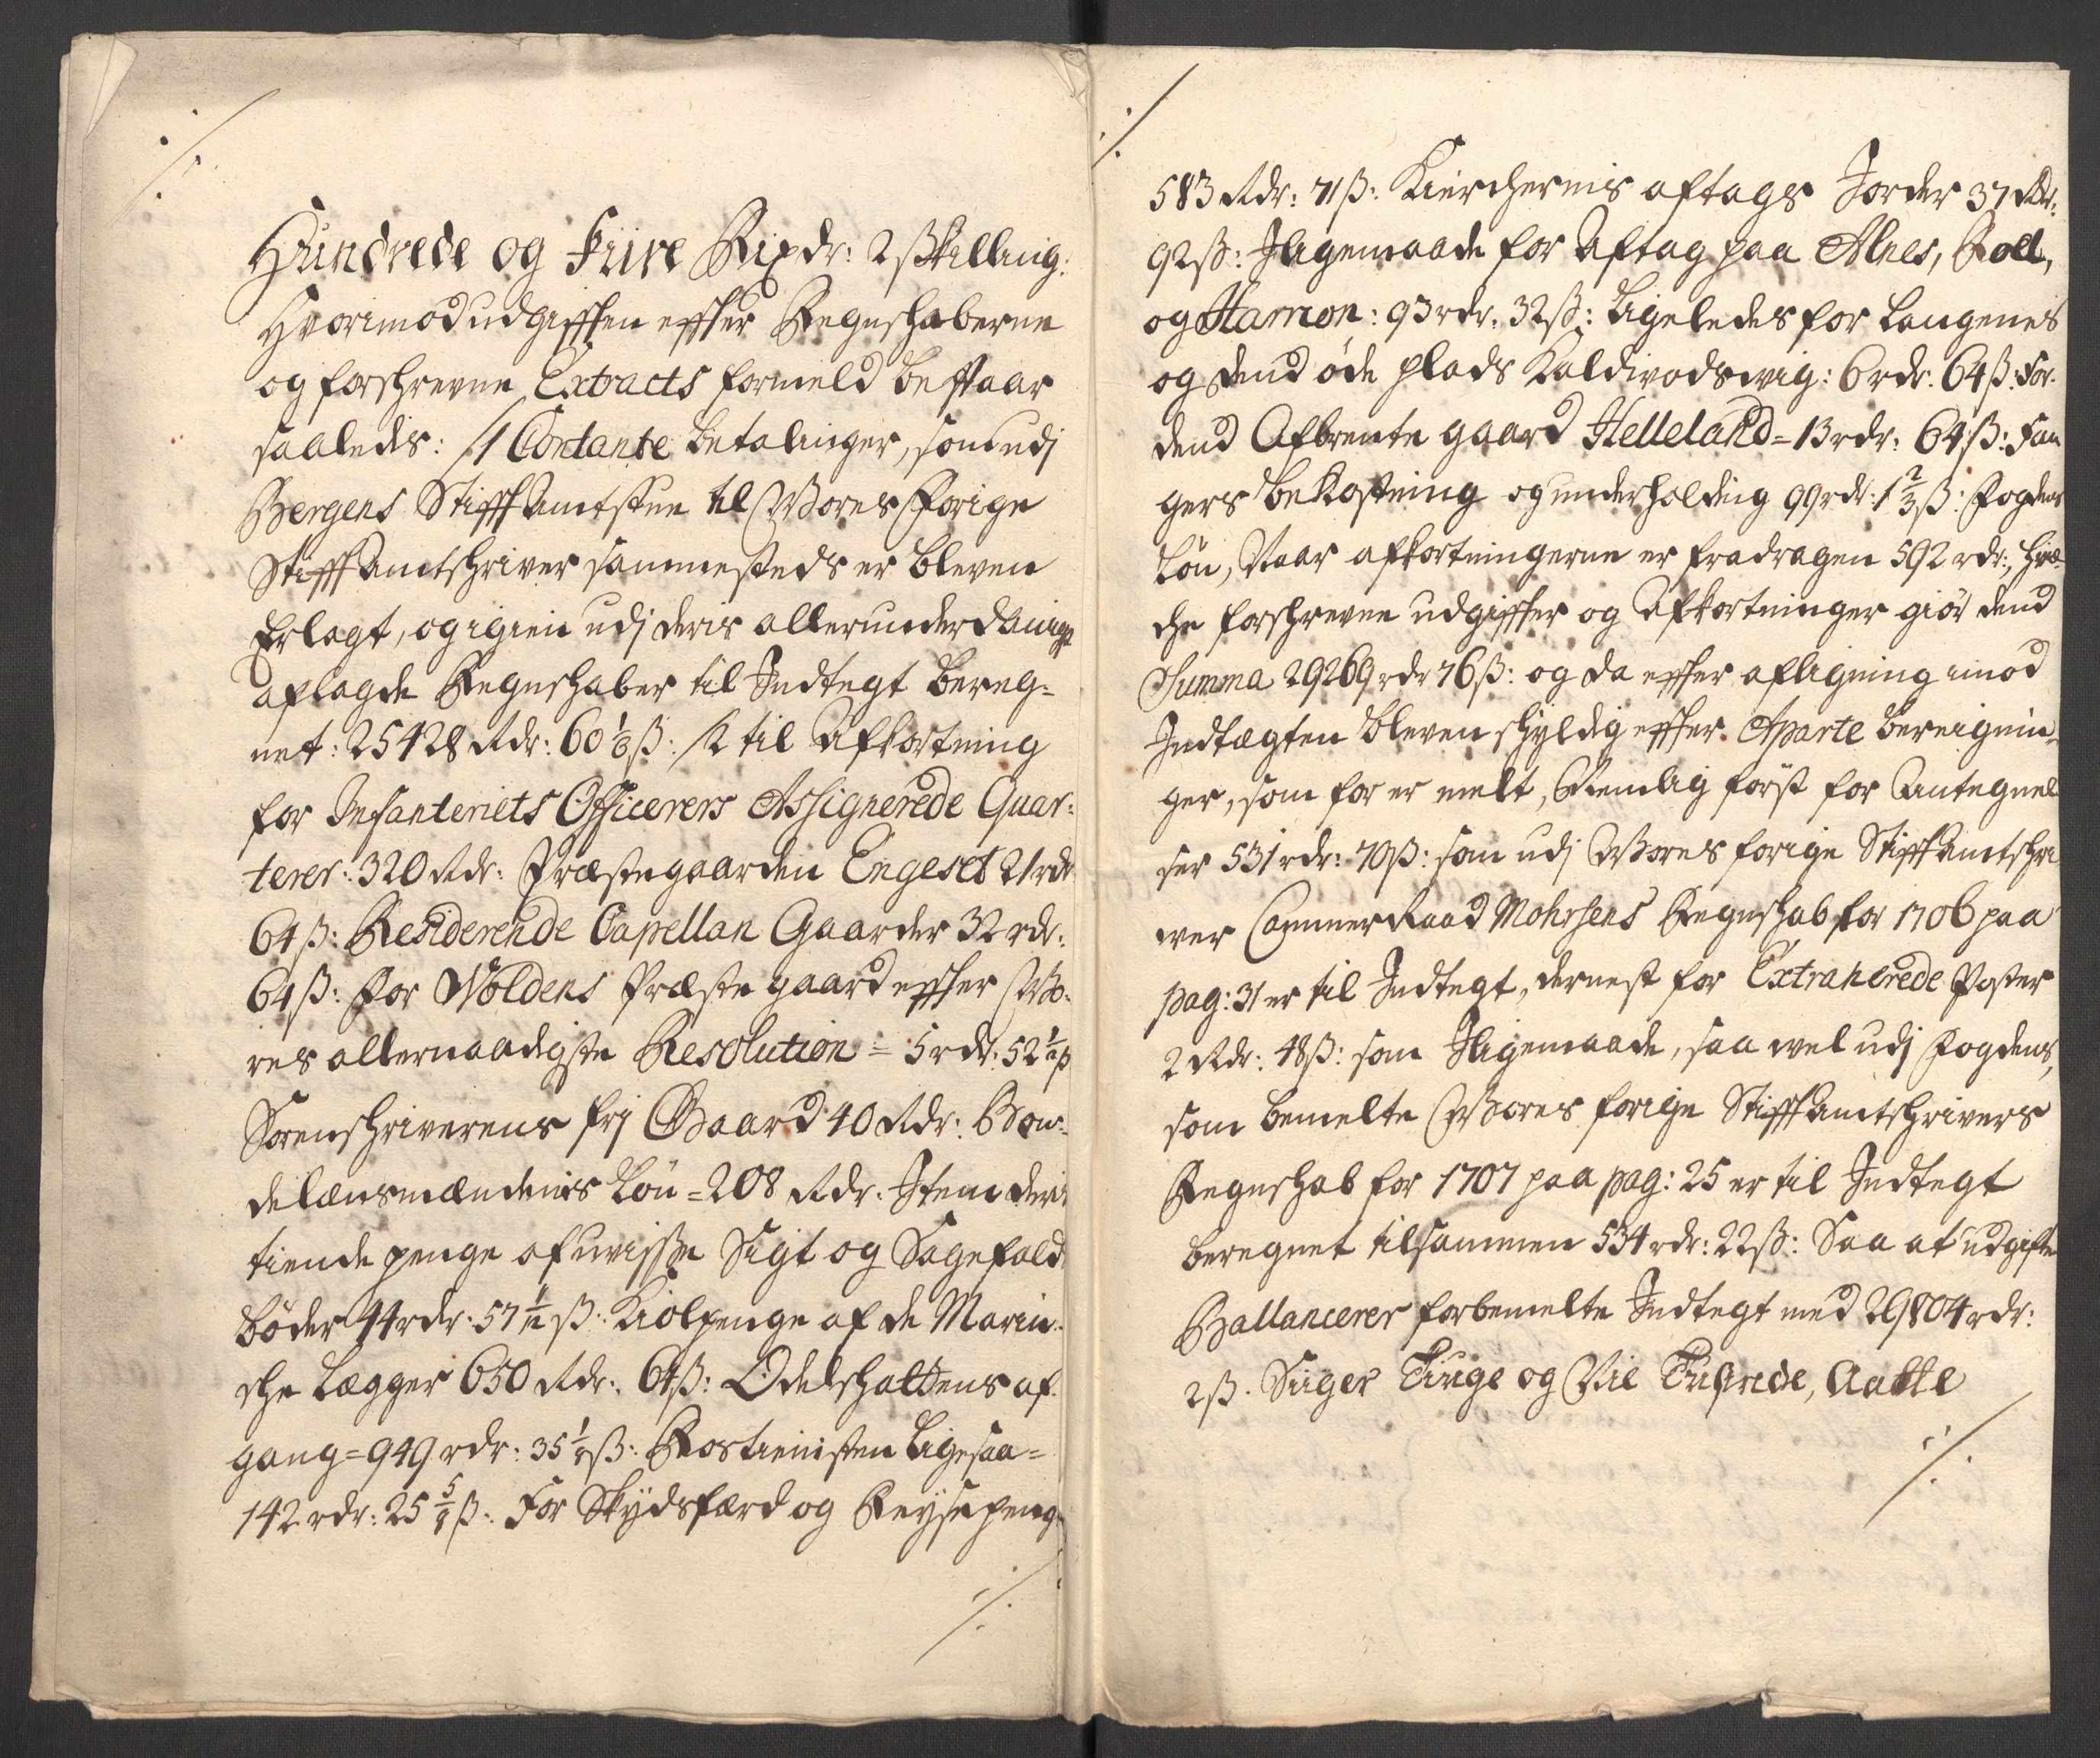 Hundrede og Fiire Rixdr: 2 skilling:
Hvorimod udgifften effter Regnschaberne
og forschrevne Extracts formeld bestaar
saaledis: /1 Contante betalinger, som udj
Bergens Stifft Amtstue til Wores Forige
Stifft Amtschriver sammesteds er bleven
Erlagt, og igien udj deris allerunderdanigst
aflagde Regnschaber til Indtegt bereg-
net: 25428 Rdr: 60 1/8 ß: /2 til Afkortning
for Infanteriets Officerers Assignerede Quar-
terer: 320 Rdr: Præstegaarden Engeset 21 rdr
64 ß: Residerende Capellan Gaarder 32 rdr:
64 ß: For Woldens Præste gaard effter Wo-
res allernaadigste Resolution = 5 rdr: 52 1/2 ß
Sorenschriverens frj Gaard 40 Rdr: Bon-
delænsmændenis Lön = 208 Rdr: Item deris
tiende penge af uvisse Sigt og Sagefald
böder 44 rdr: 57 1/2 ß: Kiolpenge af de Marin-
sche Lægger 650 Rdr: 64 ß: Odelschattens af-
gang = 949 rdr: 35 1/8 ß: Rostienisten Ligesaa =
142 rdr: 25 5/8 ß: For Skydsfærd og Reysepeng
583 Rdr: 71 ß: Kirchernis aftags Jorder 37 Rdr:
92 ß: Iligemaade for Aftag paa Alnes, Roll,
og Hamon: 93 rdr: 32 ß: Ligeledes for Langenes
og dend öde plads Kaldivodswig: 6 rdr: 64 ß: For
dend Afbrente gaard Helleland = 13 rdr: 64 ß: Fan
gers bekostning og underholding 99 rdr: 1 2/3 ß: Fogdens
Lön, Naar afkortningerne er fradragen 592 rdr:, hvil-
che forschrevne udgiffter og Afkortninger giör dend
Summa 29269 rdr 76 ß: og da effter afligning imod
Indtægten bleven schyldig effter Aparte bereignin-
ger, som for er melt, Nemlig först for Antegnel
ser 531 rdr: 70 ß: som udj Wores forige Stifft Amtschri
wer Cammer Raad Mohrsens Regnschab for 1706 paa
pag: 31 er til Indtegt, dernest for Extraherede Poster
2 Rdr: 48 ß: som Iligemaade, saa wel udj Fogdens,
som bemelte Wores forige Stifft Amtschrivers
Regnschab for 1707 paa pag: 25 er til Indtegt
beregnet tilsammen 534 rdr: 22 ß: Saa at udgiften
Ballancerer forbemelte Indtegt med 29804 rdr:
2 ß. Siiger Tiuge og Nie Tusinde, Aatte